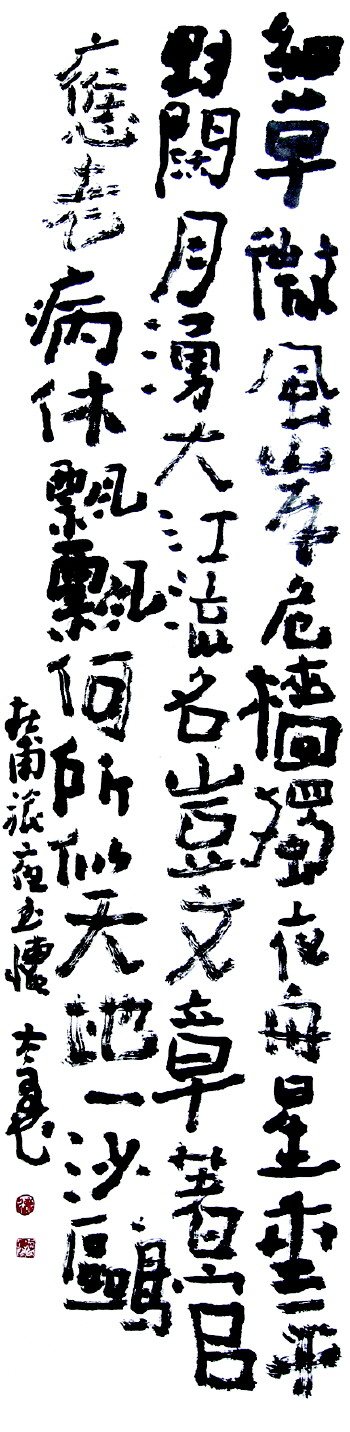 細草微風岸危檣獨夜舟星垂平
野闊月湧大江流名豈文章著官
應老病休飄飄何所似天地一沙鷗
杜甫旅夜書懷